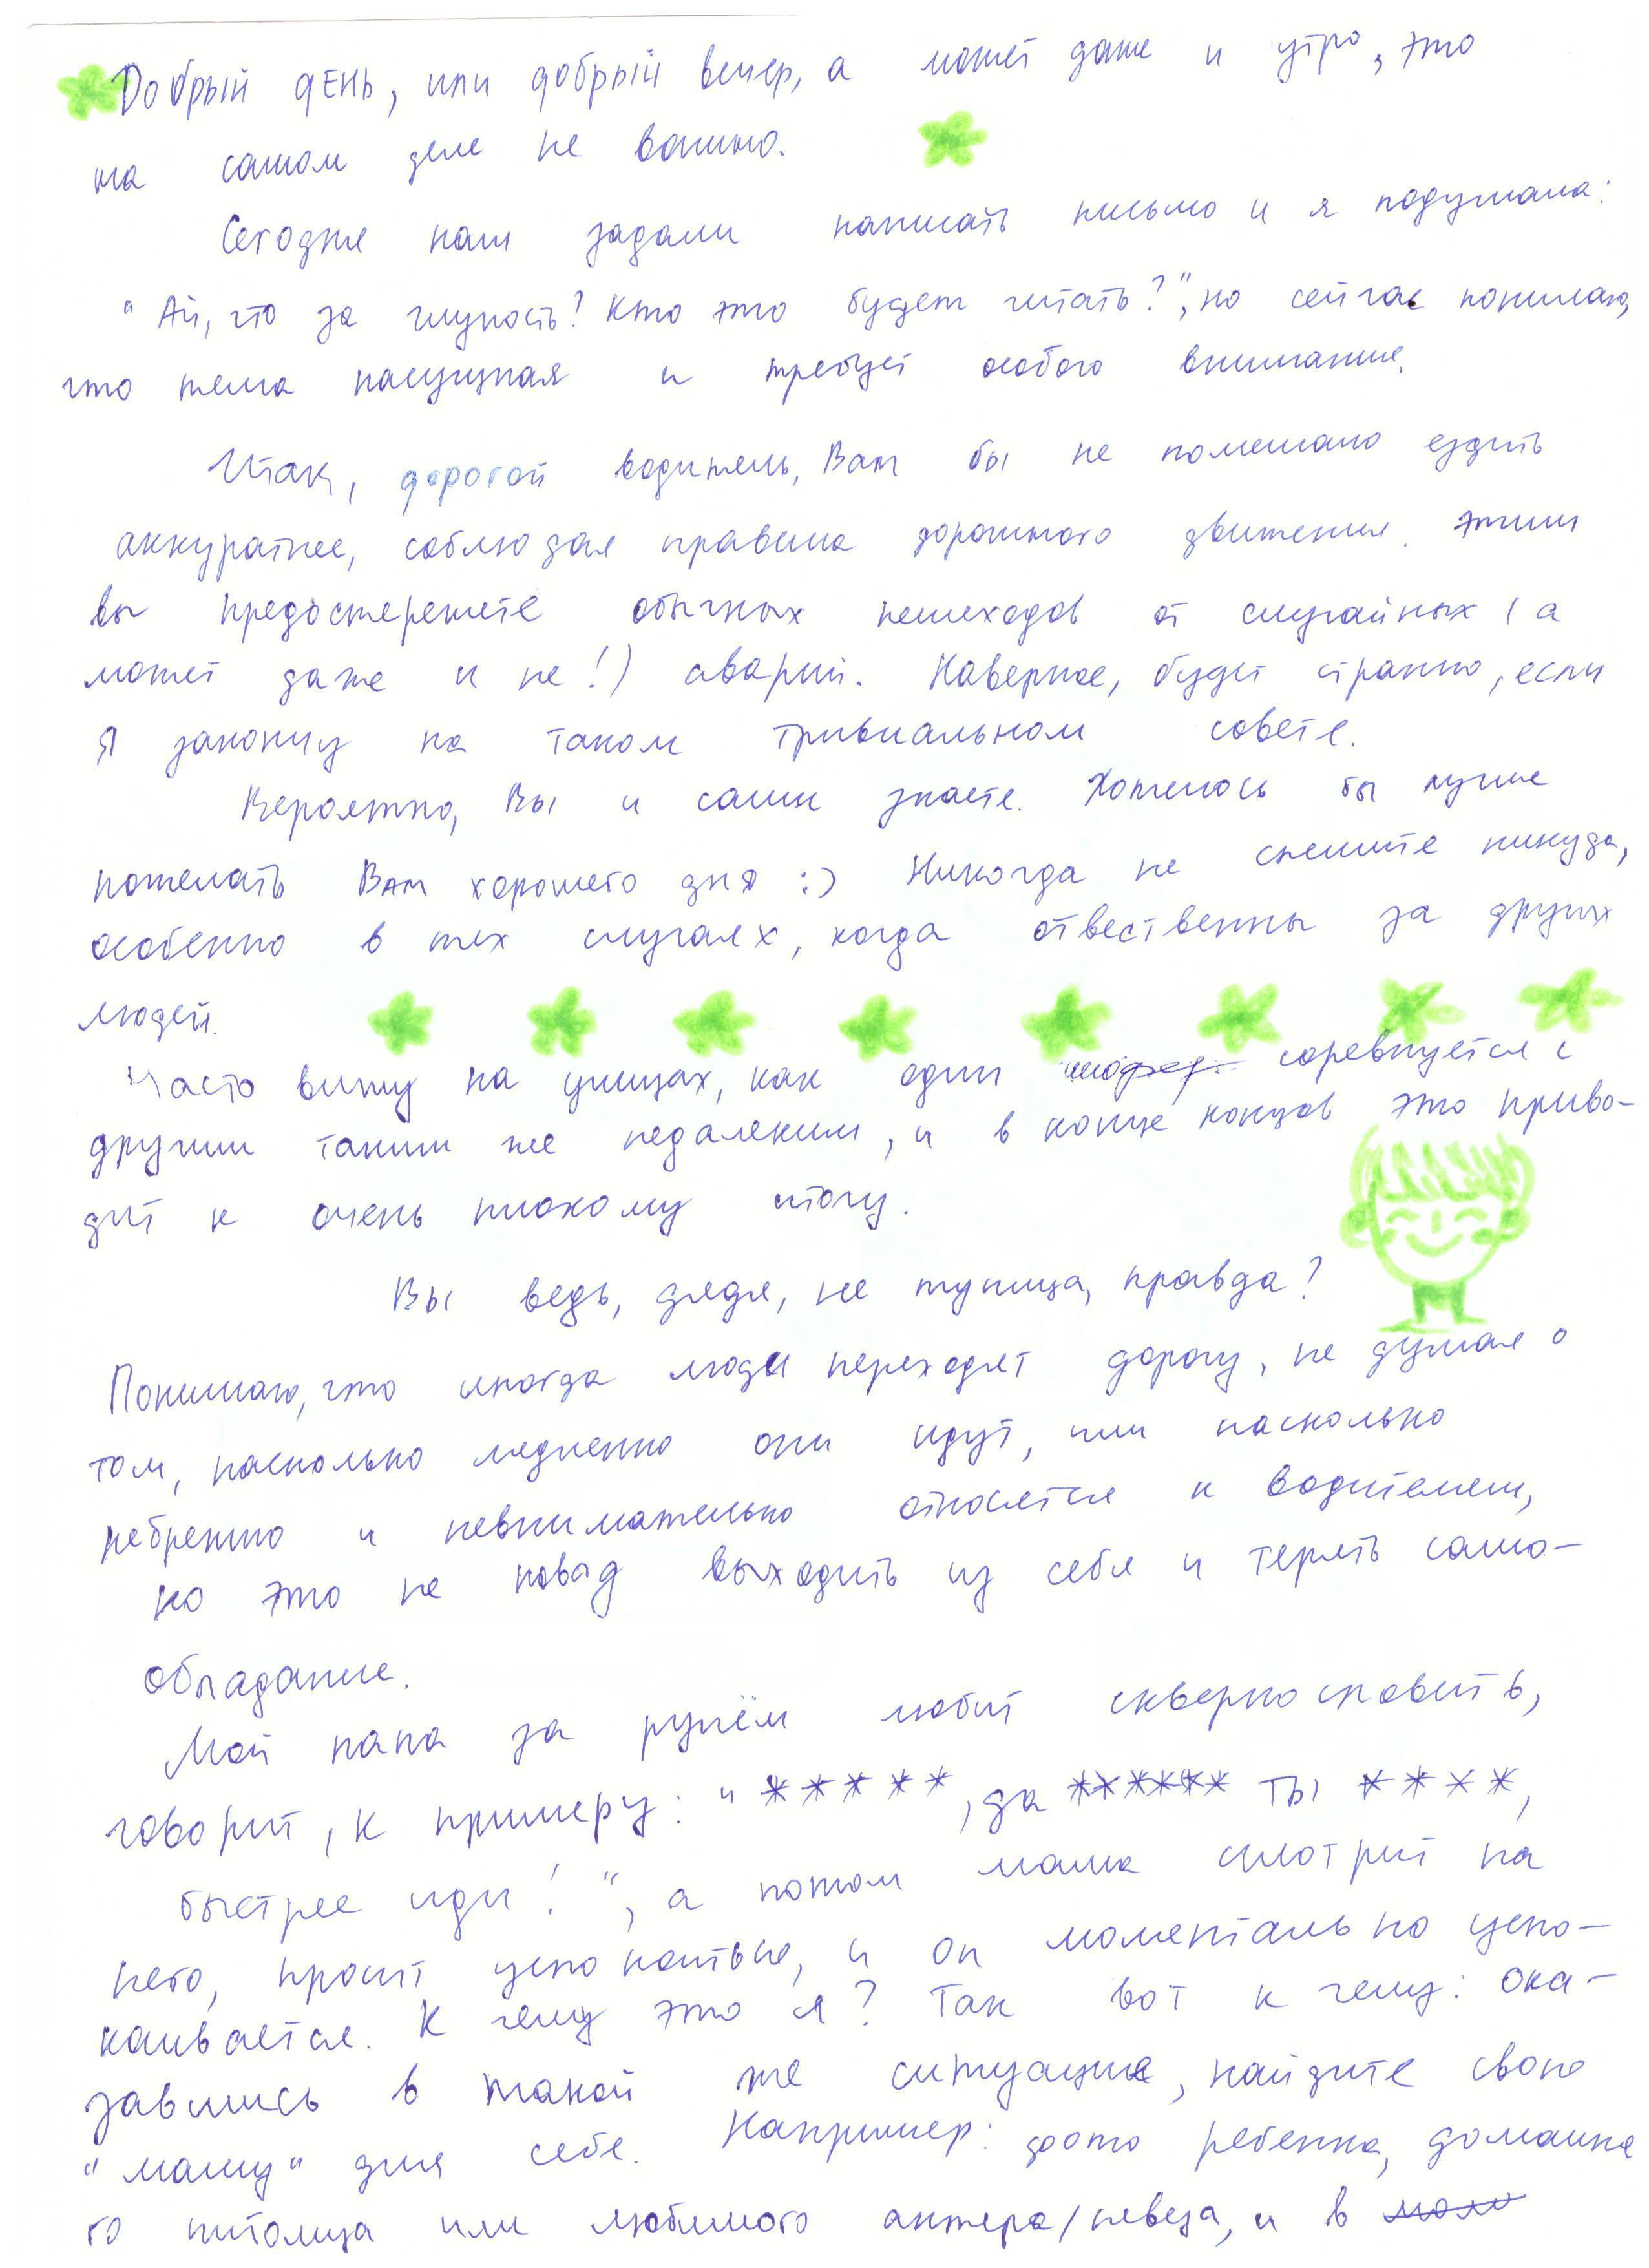 Добрый день, или добрый вечер, а может даже и утро, это
на самом деле не важно.
Сегодня нам задали написать письмо и я подумала:
"Ай, что за глупость! Кто это будет читать?", но сейчас понимаю,
что тема насущная и требует особого внимания.
Итак, дорогой водитель, Вам бы не помешало ездить
аккуратнее, соблюдая правила дорожного движения. Этим
вы предостережёте обычных пешеходов от случайных (а
может даже и не!) аварий. Наверное, будет странно, если
я закончу на таком тривиальном совете.
Вероятно, Вы и сами знаете. Хотелось бы лучше
пожелать Вам хорошего дня :) Никогда не спешите никуда,
особенно в тех случаях, когда отвественны за других
людей.
Часто вижу на улицах, как один шофер соревнуется с
другим таким же недалеким, и в конце концов это приво-
дит к очень плохому итогу.
Вы ведь, дядя, не тупица, правда?
Понимаю, что иногда люди переходят дорогу, не думая о
том, насколько медленно они идут, или насколько
небрежно и невнимательно относятся к водителям,
но это не повод выходить из себя и терять само-
обладание.
Мой папа за рулём любит сквернословить,
говорит, к примеру: "*****, да ****** ты ****,
быстрее иди!", а потом мама смотрит на
него, просит успокоиться, и он моментально успо-
каивается. К чему это я? Так вот к чему: ока-
завшись в такой же ситуации, найдите свою
"маму" для себя. Например: фото ребенка, домашне
го питомца или любимого актера/певеца, и в